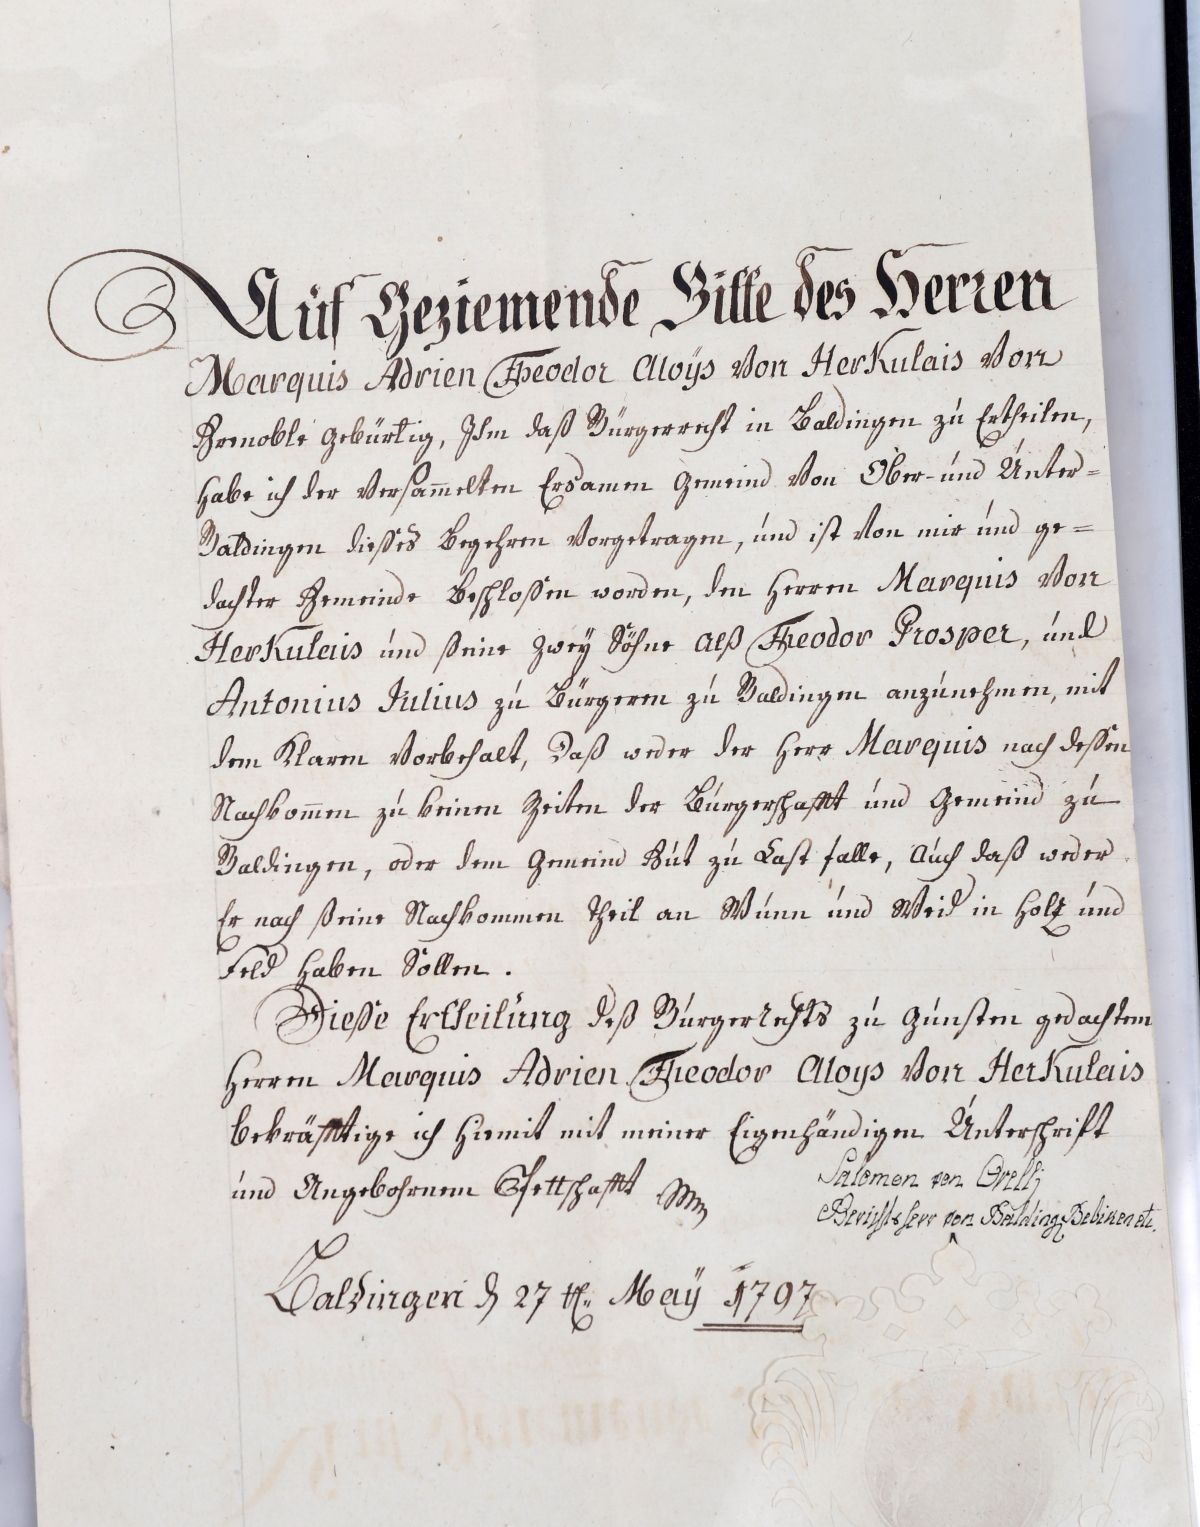 Auf Geziemende Bitte des Herren
Marquis Adrien Theodor Aloÿs Von HerKulais Von
Grenoble gebürtig, Ihm daß Bürgerrecht in Baldingen zú Ertheilen,
habe ich der Versam̅elten Ersamen Gemeind Von Ober- únd Únter=
Baldingen dießes Begehren Vorgetragen, únd ist Von mir únd ge=
dachter Gemeinde Beschloßen worden, den Herren Marquis Von
HerKulais únd ßeine Zweÿ Söhne alß Theodor Prosper, únd
Antonius Julius zú Bürgeren zú Baldingen anzúnehmen, mit
dem Klaren Vorbehalt, Daß weder der Herr Marquis noch deßen
Nachkom̅en zú keinen Zeiten der Bürgerschafft únd Gemeind zú
Baldingen, oder dem Gemeind Gút zú Last falle, Aúch daß weder
Er noch ßeine Nachkommen Theil an Wúnn únd Weid in Holtz únd
Feld haben Sollen.
Dieße Ertheilúng deß Bürgerrechts zú Gúnsten gedachtem
Herren Marquis Adrien Theodor Aloys Von HerKulais
bekräfftige ich Hiemit mit meiner Eigenhändigen Únterschrift
und Angebohrnem Pettschafft
Salomon von Orelli
Gerichtsherr von Balding
Baldingen d 27 t. Maÿ 1797